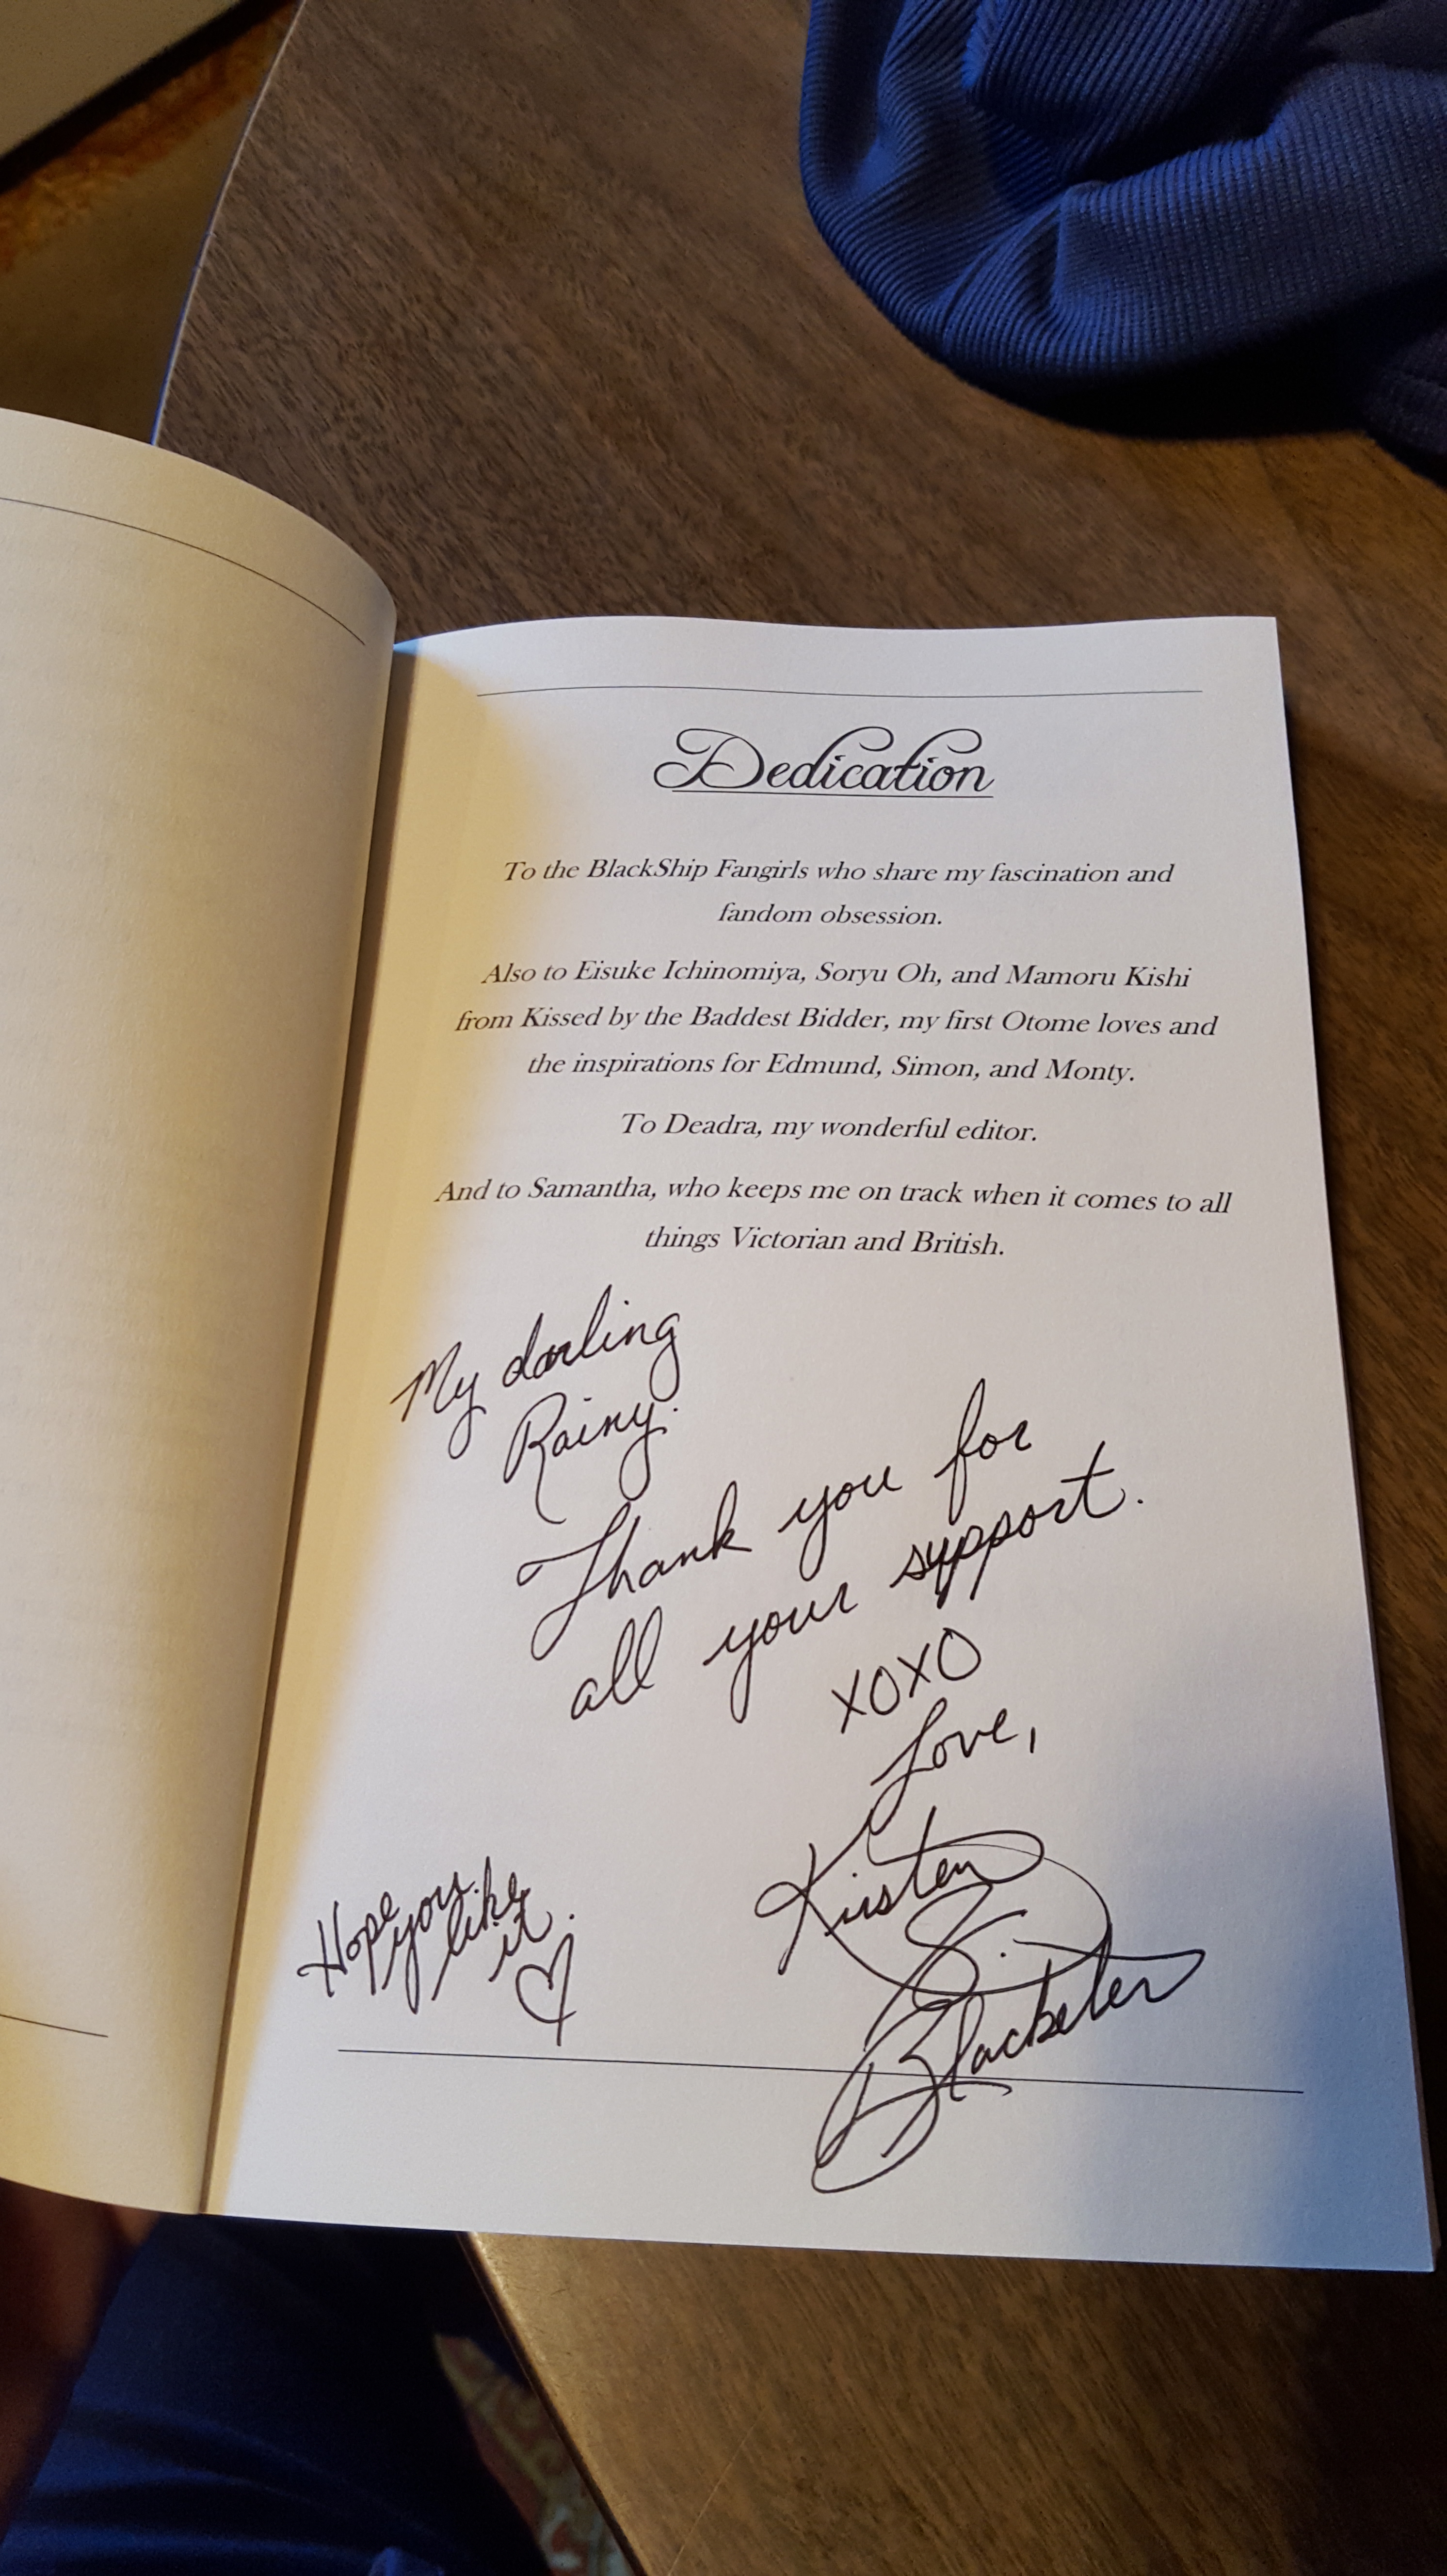 Dedication
To the BlackShip Fangirls who share my fascination and
fandom obsession.
Also to Eisuke Ichinomiya, Soryu Oh, and Mamoru Kishi
from Kissed by the Baddest Bidder, my first Otome loves and
the inspirations for Edmund, Simon, and Monty.
To Deadra, my wonderful editor.
And to Samantha, who keeps me on track when it comes to all
things Victorian and British.
My darling
Rainy.
Thank you for
all your support.
XOXO
Love,
Kirsten
S.
Blacketer
Hope you
like
it.